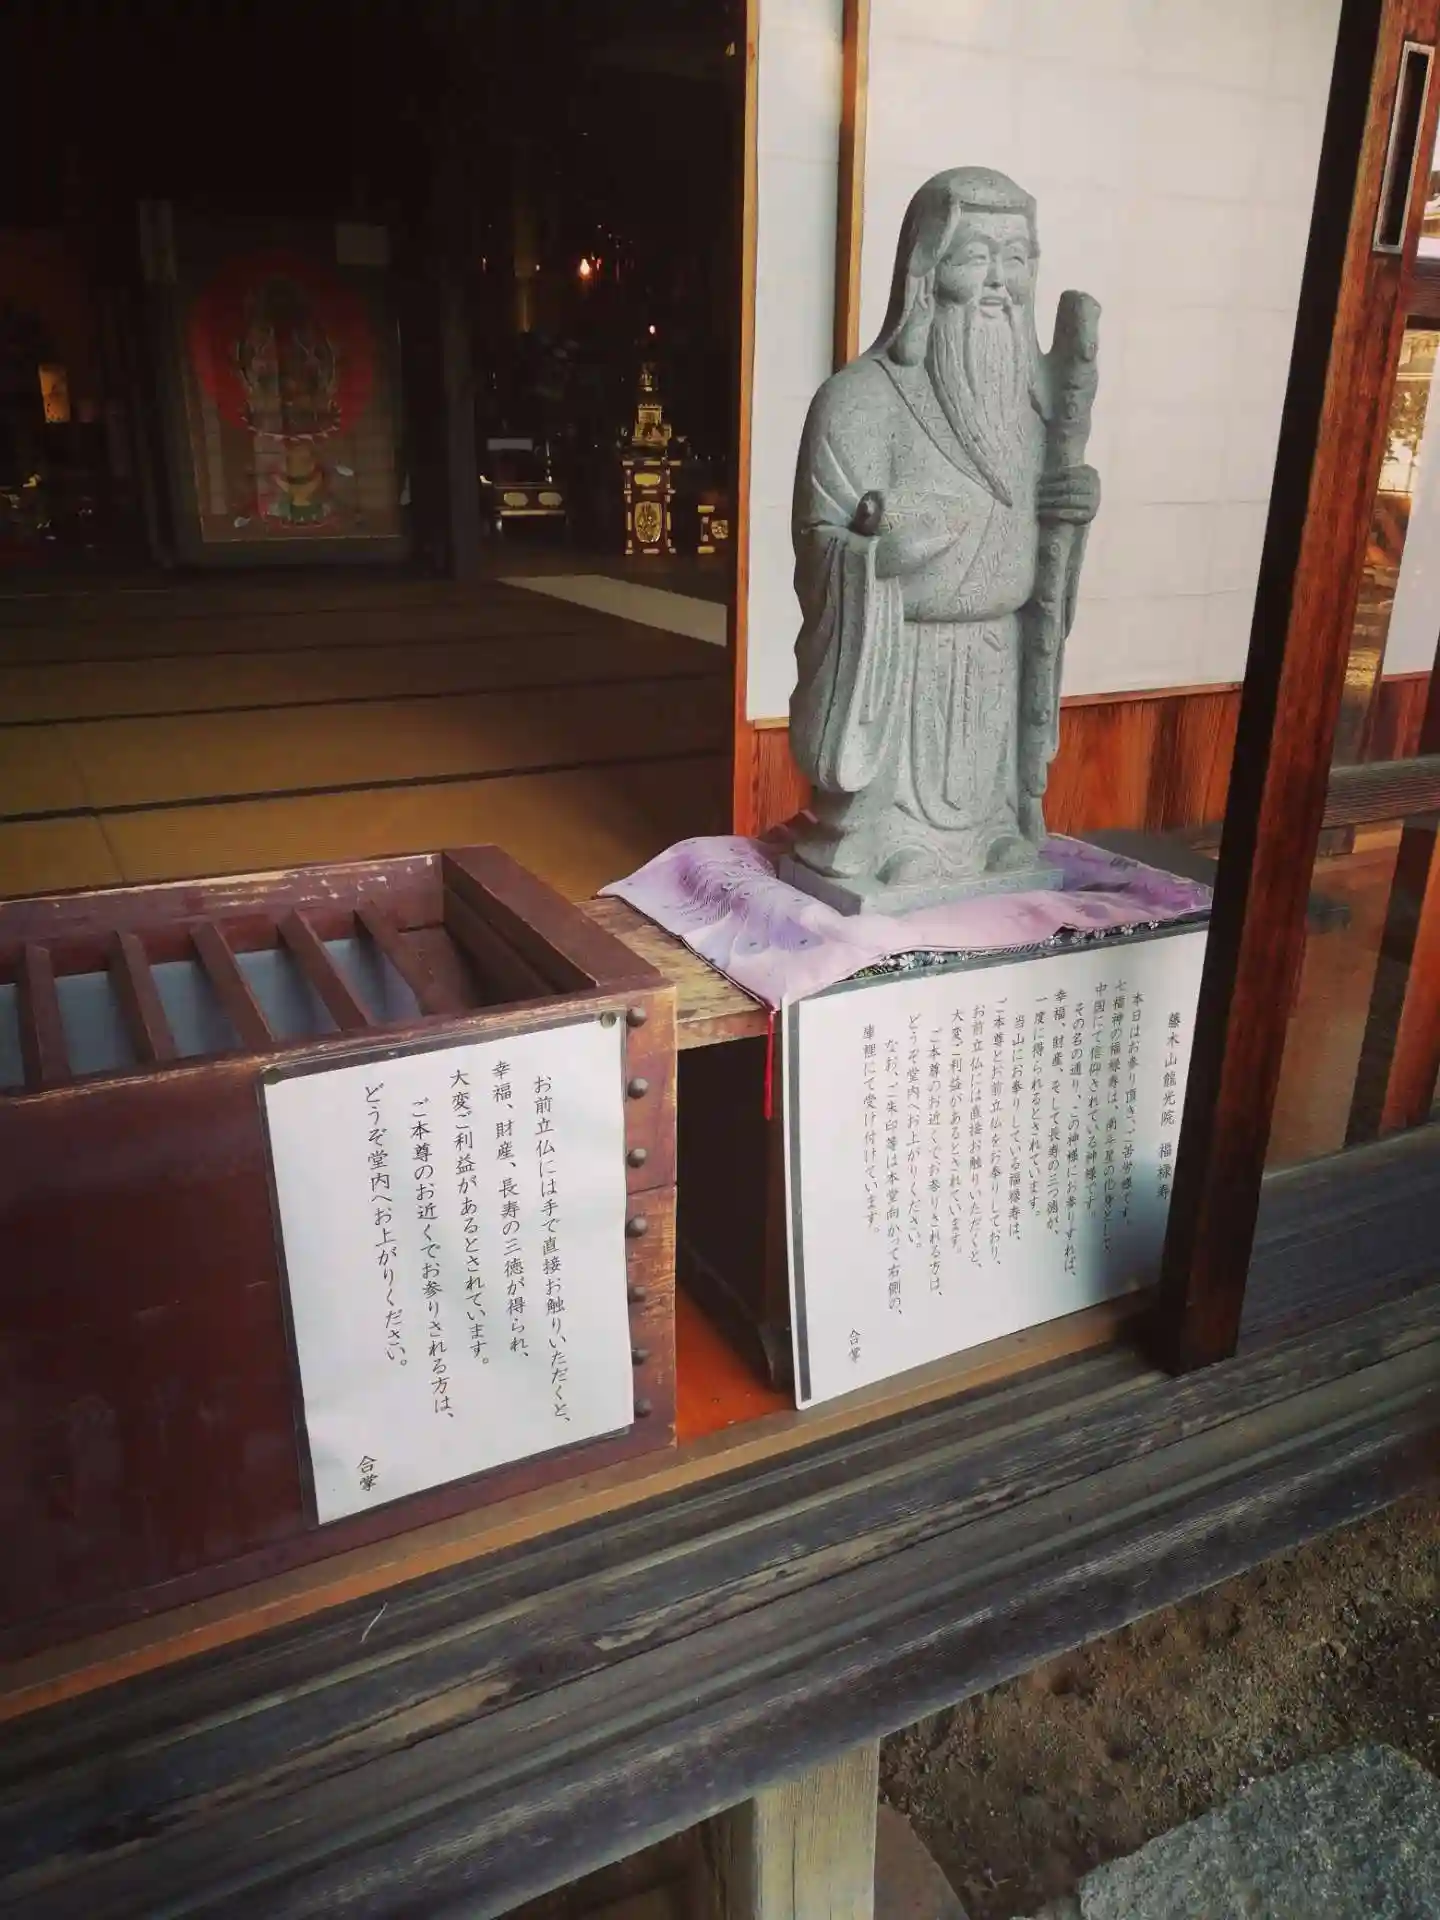 お前立仏には手で直接お触りいただくと、
幸福、財産、長寿の三徳が得られ、
大変ご利益があるとされています。
ご本尊のお近くでお参りされる方は、
どうぞ堂内へお上がりください。
合掌
藤木山龍光院 福禄寿
本日はお参り頂き、ご苦労様です。
七福神の福禄寿は、南斗星の化身として、
中国にて信仰されている神様です。
その名の通り、この神様にお参りすれば、
幸福、財産、そして長寿の三つ徳が、
一度に得られるとされています。
当山にお参りしている福禄寿は、
ご本尊とお前立仏をお参りしており、
お前立仏には直接お触りいただくと、
大変ご利益があるとされています。
ご本尊のお近くでお参りされる方は、
どうぞ堂内へお上がりください。
なお、ご朱印等は本堂向かって右側の、
庫裡にて受け付けています。
合掌